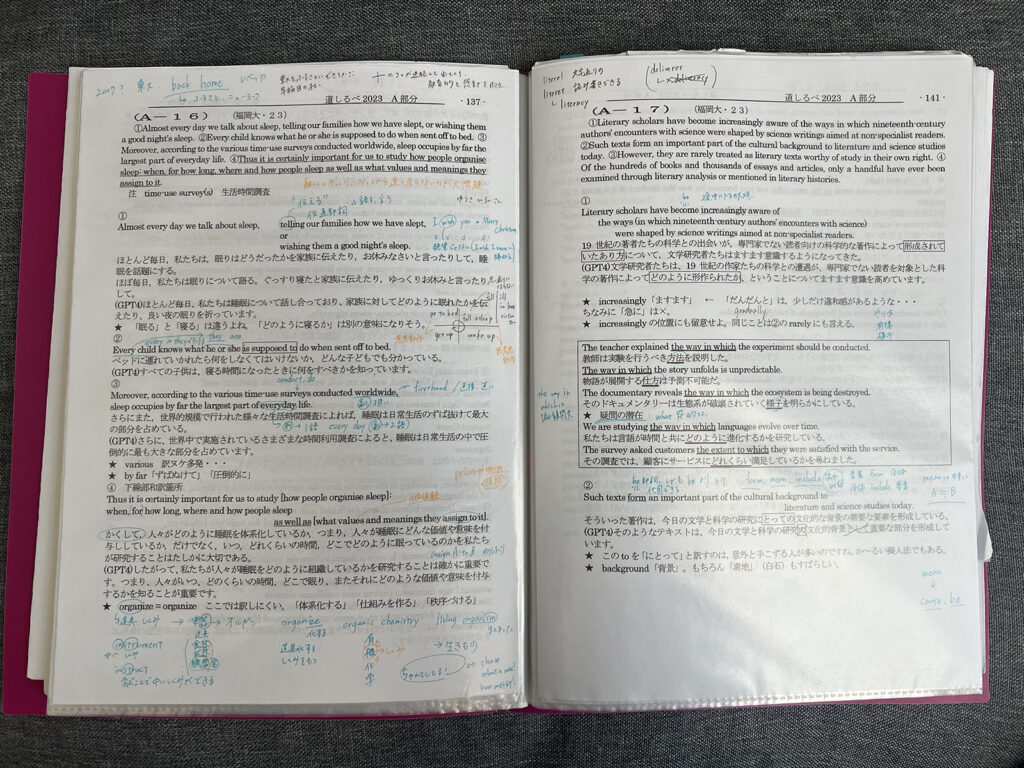 2007? 東大 back home Uターン
道しるべ 2023　A 部分　・137・
(A－１６)　(福岡大・２３)
①Almost every day we talk about sleep, telling our families how we have slept, or wishing them
a good night's sleep. ②Every child knows what he or she is supposed to do when sent off to bed. ③
Moreover, according to the various time-use surveys conducted worldwide, sleep occupies by far the
largest part of everyday life. ④Thus it is certainly important for us to study how people organise
sleep: when, for how long, where and how people sleep as well as what values and meanings they
assign to it.
注　time-use survey(s)　生活時間調査
"伝える"
伝達動詞
①
Almost every day we talk about sleep,
telling our families how we have slept,
or
wishing them a good night's sleep.
I wish you a Merry
Christmas
ほとんど毎日、私たちは、眠りはどうだったかを家族に伝えたり、お休みなさいと言ったりして、睡
眠を話題にする。
ほぼ毎日、私たちは眠りについて語る。ぐっすり寝たと家族に伝えたり、ゆっくりお休みと言ったり
して。
(GPT4)ほとんど毎日、私たちは睡眠について話し合っており、家族に対してどのように眠れたかを伝
えたり、良い夜の眠りを祈っています。
go to bed
fall asleep
get up
wake up
★　「眠る」と「寝る」は違うよね。「どのように寝るか」は別の意味になりそう。
②
they are
Every child knows what he or she is supposed to do when sent off to bed.
ベッドに連れていかれたら何をしなくてはいけないか、どんな子どもでも分かっている。
(GPT4)すべての子供は、寝る時間になったときに何をすべきかを知っています。
③
conduct, do
Moreover, according to the various time-use surveys conducted worldwide,
firsthand
sleep occupies by far the largest part of everyday life.
さらにまた、世界的規模で行われた様々な生活時間調査によれば、睡眠は日常生活のずば抜けて最大
の部分を占めている。
every day
(GPT4)さらに、世界中で実施されているさまざまな時間利用調査によると、睡眠は日常生活の中で圧
倒的に最も大きな部分を占めています。
★　various　訳ヌケ多発・・・
★　by far「ずばぬけて」「圧倒的に」
④　下線部和訳箇所
Thus it is certainly important for us to study [how people organise sleep]:
when, for how long, where and how people sleep
as well as [what values and meanings they assign to it].
かくして、人々がどのように睡眠を体系化しているか、つまり、人々が睡眠にどんな価値や意味を付
与ししているか、だけでなく、いつ、どれくらいの時間、どこでどのように眠っているのかを私たち
が研究することはたしかに大切である。
assign A to B
(GPT4)したがって、私たちが人々が睡眠をどのように組織しているかを研究することは確かに重要で
す。つまり、人々がいつ、どのくらいの時間、どこで眠り、またそれにどのような価値や意味を付与
するかを知ることが重要です。
★　organize＝organize　ここでは訳しにくい。「体系化する」「仕組みを作る」「秩序づける」
道具 しくみ → オルガン
organize
organic chemistry
living organism
instrument
道具化する
しくみをもつ
有機化学
→ 生きもの
instruct
literal 文字通りの
literate 読み書きできる
literacy
deliverer
道しるべ 2023　A 部分　・141・
(A－１７)　(福岡大・２３)
①Literary scholars have become increasingly aware of the ways in which nineteenth-century
authors' encounters with science were shaped by science writings aimed at non-specialist readers.
②Such texts form an important part of the cultural background to literature and science studies
today. ③However, they are rarely treated as literary texts worthy of study in their own right. ④
Of the hundreds of books and thousands of essays and articles, only a handful have ever been
examined through literary analysis or mentioned in literary histories.
①
be
Literary scholars have become increasingly aware of
the ways (in which nineteenth century authors' encounters with science)
were shaped by science writings aimed at non-specialist readers.
19 世紀の著者たちの科学との出会いが、専門家でない読者向けの科学的な著作によって形成されて
いたあり方について、文学研究者たちはますます意識するようになってきた。
(GPT4)文学研究者たちは、19 世紀の作家たちの科学との遭遇が、専門家でない読者を対象とした科
学の著作によってどのように形作られたか、ということについてますます認識しています。
★　increasingly「ますます」　←　「だんだんと」は、少しだけ違和感があるような・・・
ちなみに「急に」は×。
gradually
★　increasingly の位置にも留意せよ。同じことは②の rarely にも言える。
The teacher explained the way in which the experiment should be conducted.
教師は実験を行うべき方法を説明した。
The way in which the story unfolds is unpredictable.
物語が展開する仕方は予測不可能だ。
The documentary reveals the way in which the ecosystem is being destroyed.
そのドキュメンタリーは生態系が破壊されていく様子を明らかにしている。
★　疑問の潜在
We are studying the way in which languages evolve over time.
私たちは言語が時間と共にどのように進化するかを研究している。
The survey asked customers the extent to which they were satisfied with the service.
その調査では、顧客にサービスにどれくらい満足しているかを尋ねました。
②
form, mean, include
A = B
Such texts form an important part of the cultural background to
literature and science studies today.
そういった著作は、今日の文学と科学の研究にとっての文化的な背景の重要な要素を形成している。
(GPT4)そのようなテキストは、今日の文学と科学の研究の文化的背景として重要な部分を形成して
います。
★　この to を「にとって」と訳すのは、意外と手こずる人が多いのですね。かーるい擬人法でもある。
★　background「背景」。もちろん「素地」（白石）もすばらしい。
mean
↓
cause, be